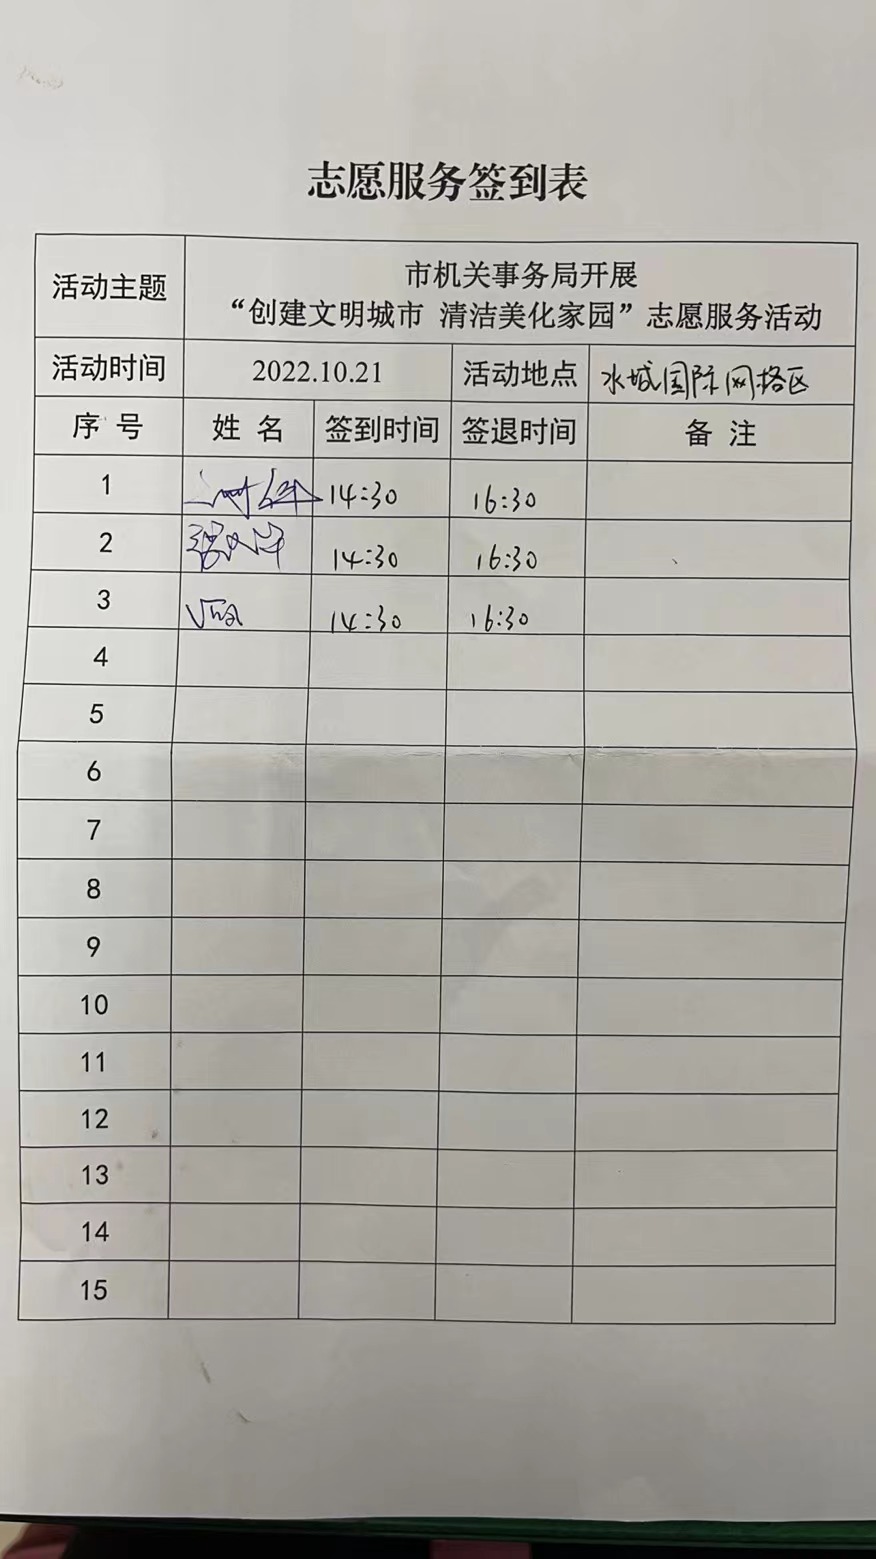 志愿服务签到表
活动主题
市机关事务局开展
“创建文明城市 清洁美化家园”志愿服务活动
活动时间 2022.10.21 活动地点 水城国际网格区
序号 姓名 签到时间 签退时间 备注
1 14:30 16:30
2 14:30 16:30
3 14:30 16:30
4
5
6
7
8
9
10
11
12
13
14
15